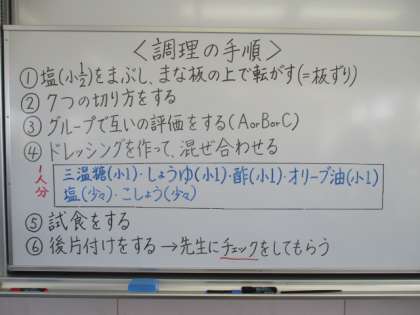 〈調理の手順〉
①塩(小1/2)をまぶし、まな板の上で転がす(=板ずり)
②7つの切り方をする
③グループで互いの評価をする(AorBorC)
④ドレッシングを作って、混ぜ合わせる
1人分
三温糖(小1)・しょうゆ(小1)・酢(小1)・オリーブ油(小1)
塩(少々)・こしょう(少々)
⑤試食をする
⑥後片付けをする→先生にチェックをしてもらう